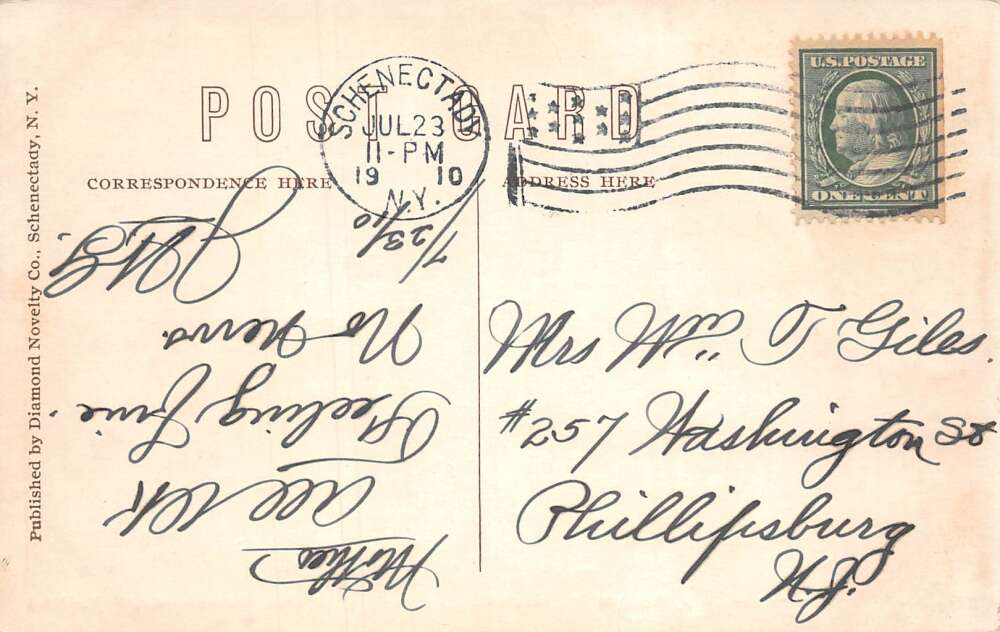 POST CARD
CORRESPONDENCE HERE
ADDRESS HERE
SCHENECTADY
JUL 23
11-PM
19 10
N.Y.
U.S. POSTAGE
ONE CENT
Published by Diamond Novelty Co., Schenectady, N. Y.
Mother
All Wt
Feeling Fine.
No News.
7/23/10
Mrs Wm T Giles.
#257 Washington St
Phillipsburg
N.J.